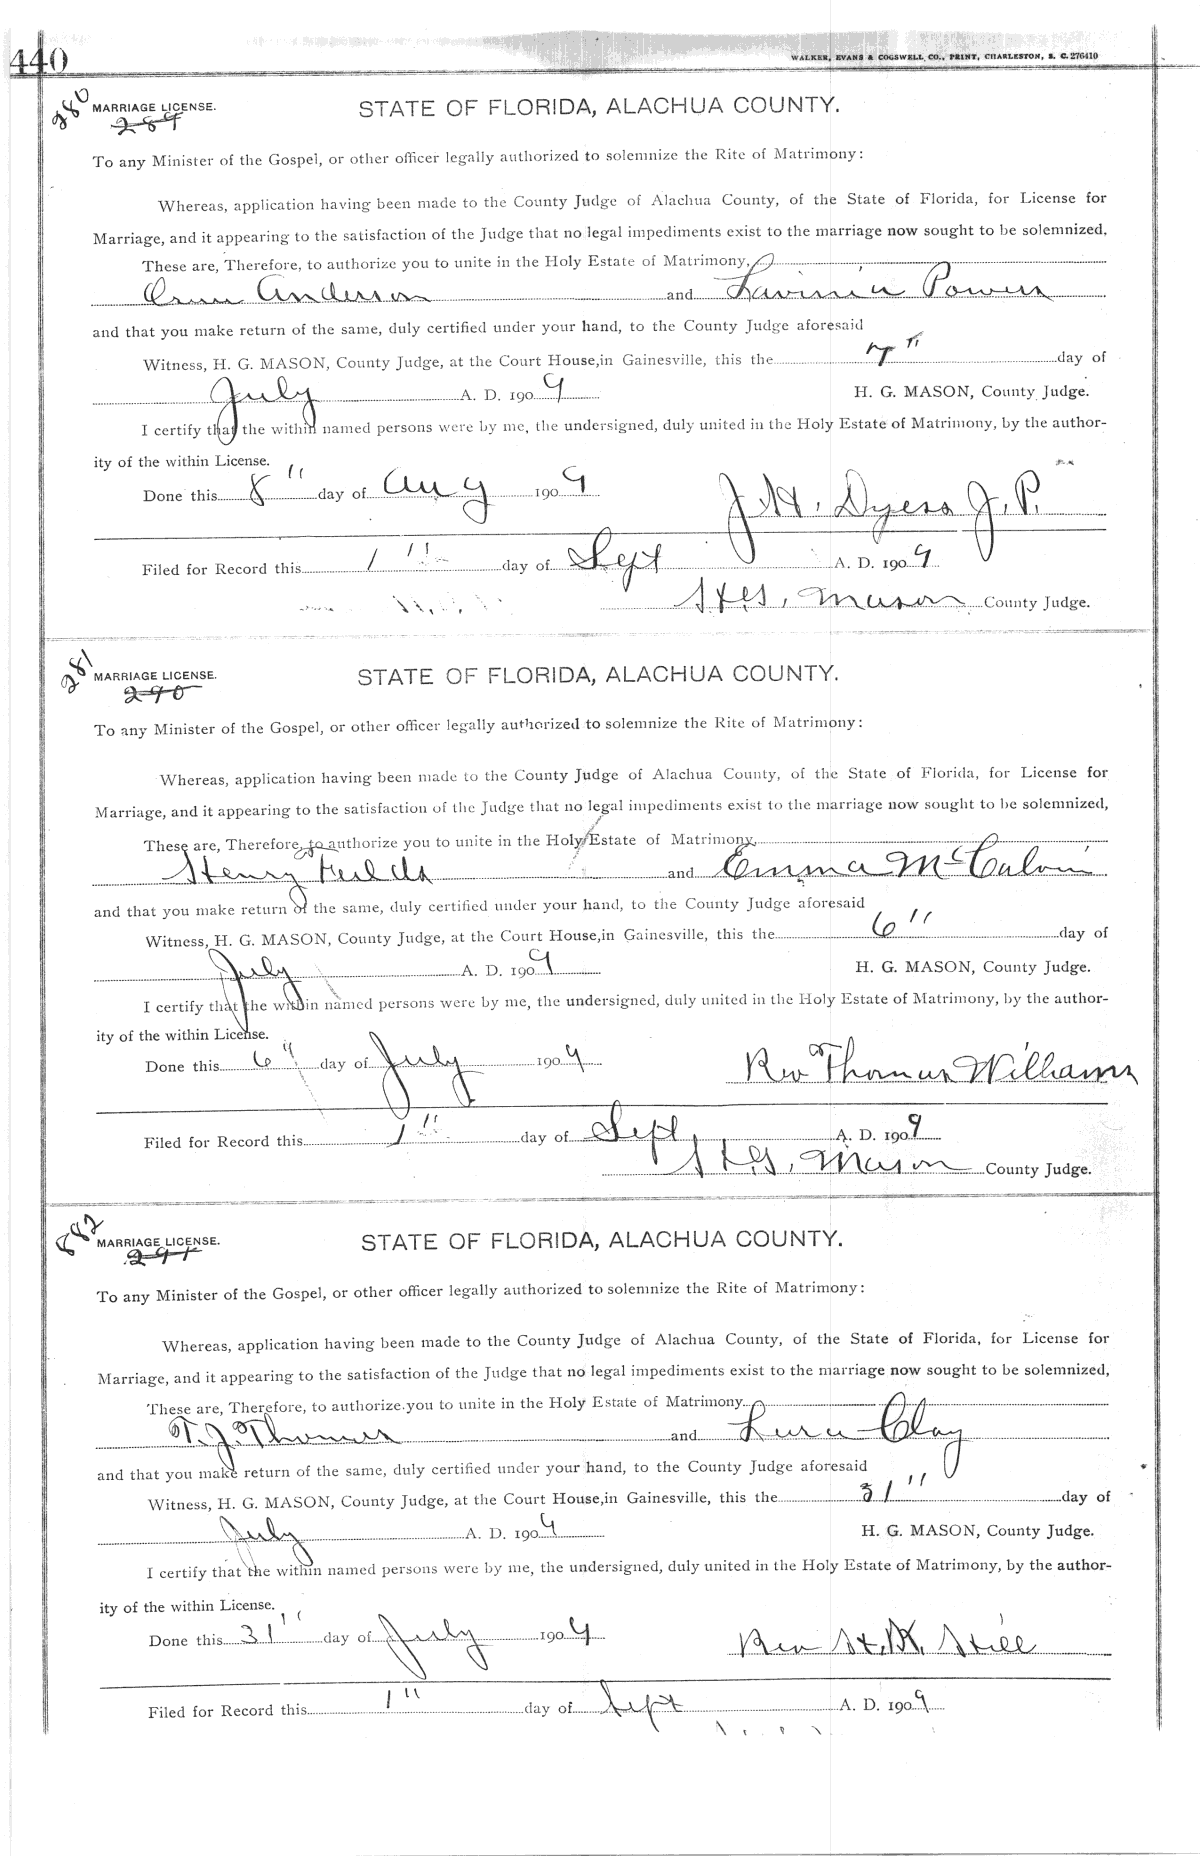 440
WALKER, EVANS & COGSWELL CO., PRINT, CHARLESTON, S. C. 276410
280 MARRIAGE LICENSE. STATE OF FLORIDA, ALACHUA COUNTY.
289
To any Minister of the Gospel, or other officer legally authorized to solemnize the Rite of Matrimony:
Whereas, application having been made to the County Judge of Alachua County, of the State of Florida, for License for
Marriage, and it appearing to the satisfaction of the Judge that no legal impediments exist to the marriage now sought to be solemnized,
These are, Therefore, to authorize you to unite in the Holy Estate of Matrimony,
Anderson and Lavinia Powers
and that you make return of the same, duly certified under your hand, to the County Judge aforesaid
Witness, H. G. MASON, County Judge, at the Court House, in Gainesville, this the 7th day of
July A. D. 1909 H. G. MASON, County Judge.
I certify that the within named persons were by me, the undersigned, duly united in the Holy Estate of Matrimony, by the author-
ity of the within License.
Done this 8" day of Aug 1909 J. H. Dyess J. P.
Filed for Record this 1" day of Sept A. D. 1909
H. G. Mason County Judge.
281 MARRIAGE LICENSE. STATE OF FLORIDA, ALACHUA COUNTY.
290
To any Minister of the Gospel, or other officer legally authorized to solemnize the Rite of Matrimony:
Whereas, application having been made to the County Judge of Alachua County, of the State of Florida, for License for
Marriage, and it appearing to the satisfaction of the Judge that no legal impediments exist to the marriage now sought to be solemnized,
These are, Therefore, to authorize you to unite in the Holy Estate of Matrimony,
Henry Fields and Emma McCalvin
and that you make return of the same, duly certified under your hand, to the County Judge aforesaid
Witness, H. G. MASON, County Judge, at the Court House, in Gainesville, this the 6" day of
July A. D. 1909 H. G. MASON, County Judge.
I certify that the within named persons were by me, the undersigned, duly united in the Holy Estate of Matrimony, by the author-
ity of the within License.
Done this 6" day of July 1909 Rev Thomas Williams
Filed for Record this 1" day of Sept A. D. 1909
H. G. Mason County Judge.
882 MARRIAGE LICENSE. STATE OF FLORIDA, ALACHUA COUNTY.
291
To any Minister of the Gospel, or other officer legally authorized to solemnize the Rite of Matrimony:
Whereas, application having been made to the County Judge of Alachua County, of the State of Florida, for License for
Marriage, and it appearing to the satisfaction of the Judge that no legal impediments exist to the marriage now sought to be solemnized,
These are, Therefore, to authorize you to unite in the Holy Estate of Matrimony
T. J. Thomas and Lura Clay
and that you make return of the same, duly certified under your hand, to the County Judge aforesaid
Witness, H. G. MASON, County Judge, at the Court House, in Gainesville, this the 31" day of
July A. D. 1909 H. G. MASON, County Judge.
I certify that the within named persons were by me, the undersigned, duly united in the Holy Estate of Matrimony, by the author-
ity of the within License.
Done this 31" day of July 1909 Rev H. K. Still
Filed for Record this 1" day of Sept A. D. 1909